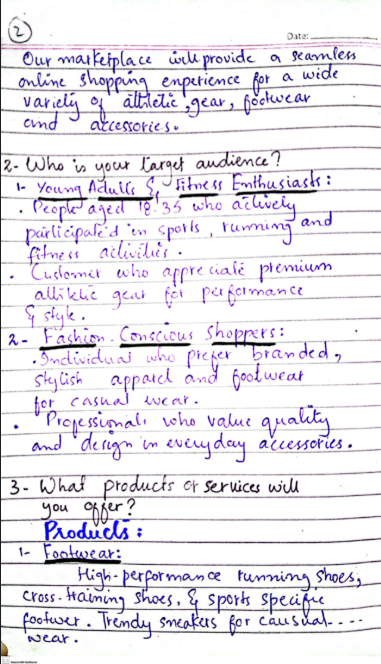 2
Date:
Our marketplace will provide a seamless
online shopping enperience for a wide
variety of athletic, gear, footwear
and accessories.
2- Who is your target audience?
1- Young Adults & Fitness Enthusiasts:
. People aged 18'35 who actively
participated in sports, running and
fitness activities.
. Customer who appreciate premium
athletic gear for performance
& style.
2- Fashion-Conscious Shoppers:
. Individual who prefer branded,
stylish apparel and footwear
for casual wear.
. Professionals who value quality
and design in everyday accessories.
3- What products or services will
you offer?
Products:
1- Footwear:
High-performance running shoes,
cross-training shoes, & sports specific
footwer. Trendy sneakers for causual----
wear.